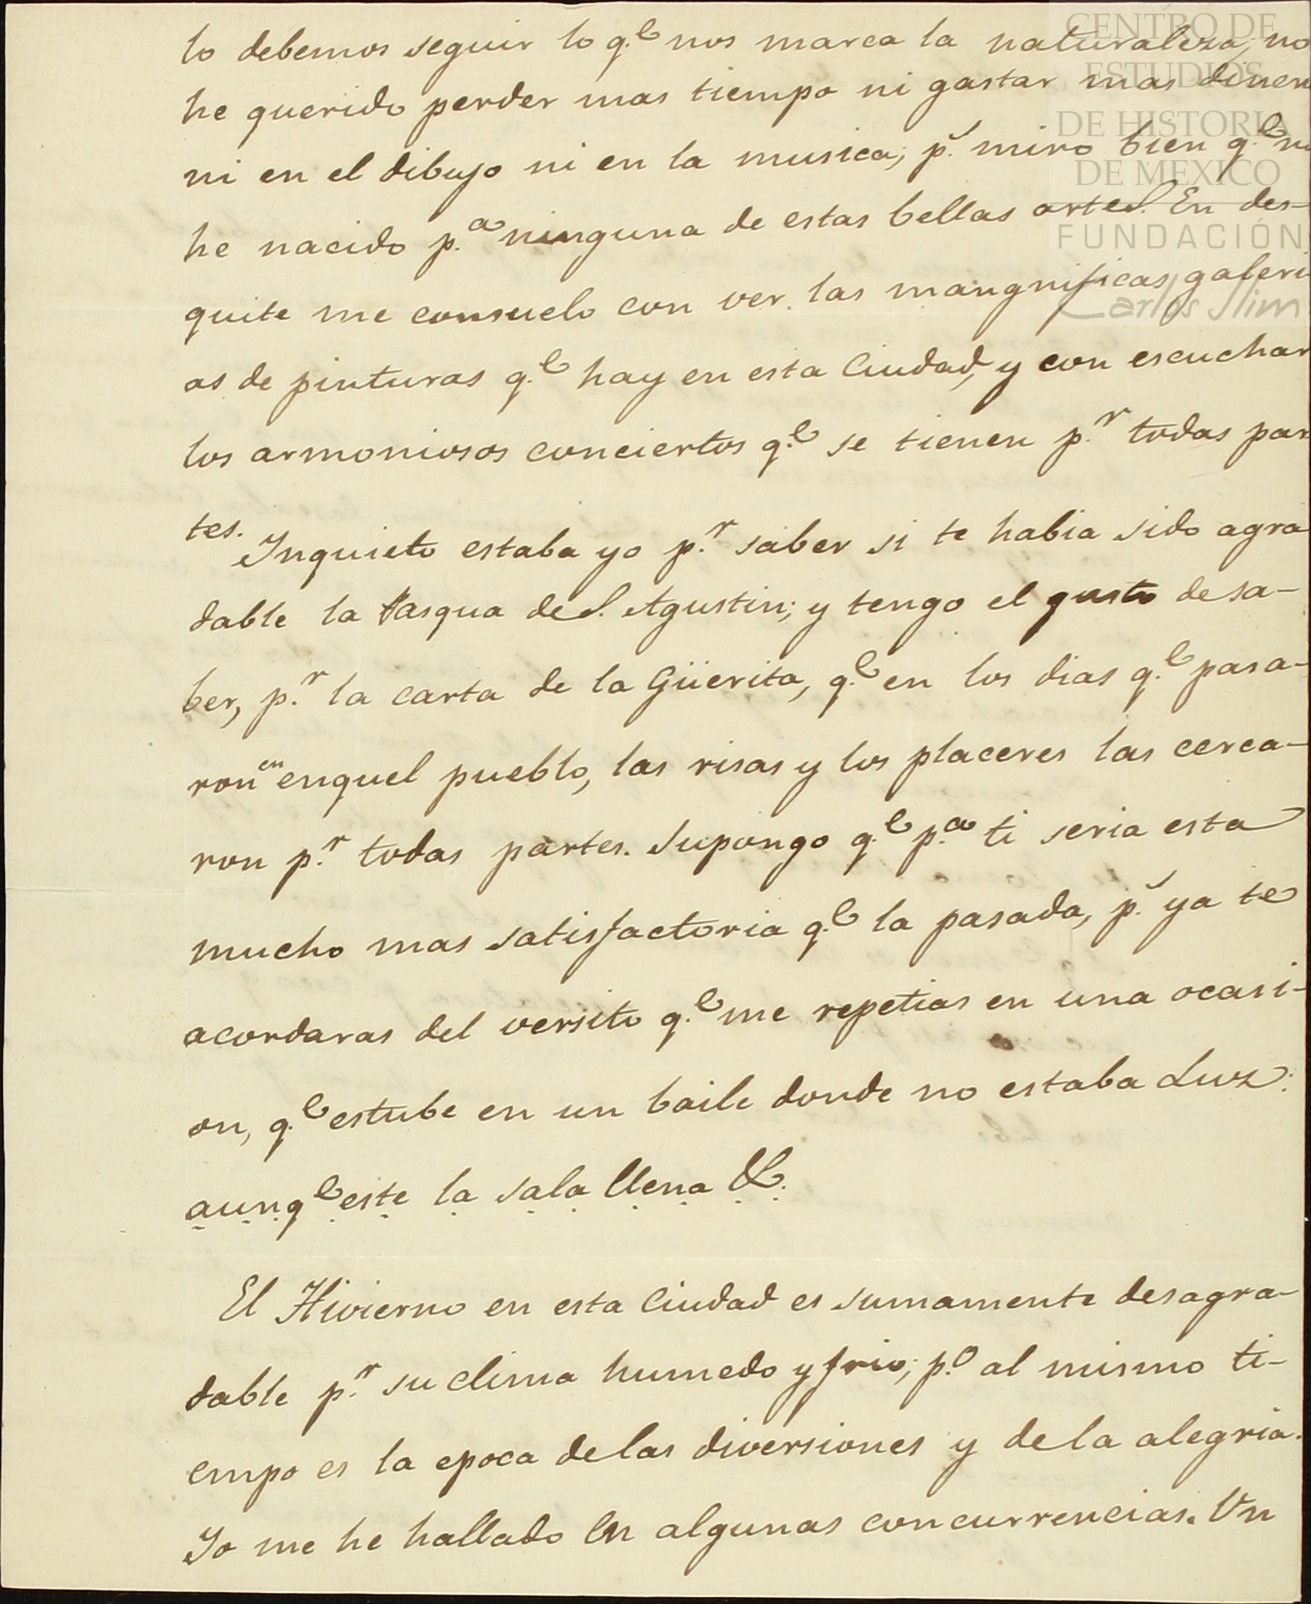 lo debemos seguir lo q.e nos marca la naturaleza, no
he querido perder mas tiempo ni gastar mas diner
ni en el dibujo ni en la musica; p.s miro bien q.e n
he nacido p.a ninguna de estas bellas artes. En des-
quite me consuelo con ver las mangnificas galeri
as de pinturas q.e hay en esta Ciudad, y con escuchar
los armoniosos conciertos q.e se tienen p.r todas par
tes.
Inquieto estaba yo p.r saber si te habia sido agra
dable la Pasqua de S. Agustin; y tengo el gusto de sa-
ber, p.r la carta de la Güerita, q.e en los dias q.e pasa-
ron en enquel pueblo, las risas y los placeres las cerca-
ron p.r todas partes. Supongo q.e p.a ti seria esta
mucho mas satisfactoria q.e la pasada, p.s ya te
acordaras del versito q.e me repetias en una ocasi-
on, q.e estube en un baile donde no estaba Luz:
aunq.e este la sala llena &.
El Hivierno en esta Ciudad es sumamente desagra-
dable p.r su clima humedo y frio; p.o al mismo ti-
empo es la epoca de las diversiones y de la alegria.
Yo me he hallado en algunas concurrencias. Un
CENTRO DE
ESTUDIOS
DE HISTORIA
DE MEXICO
FUNDACIÓN
Carlos Slim